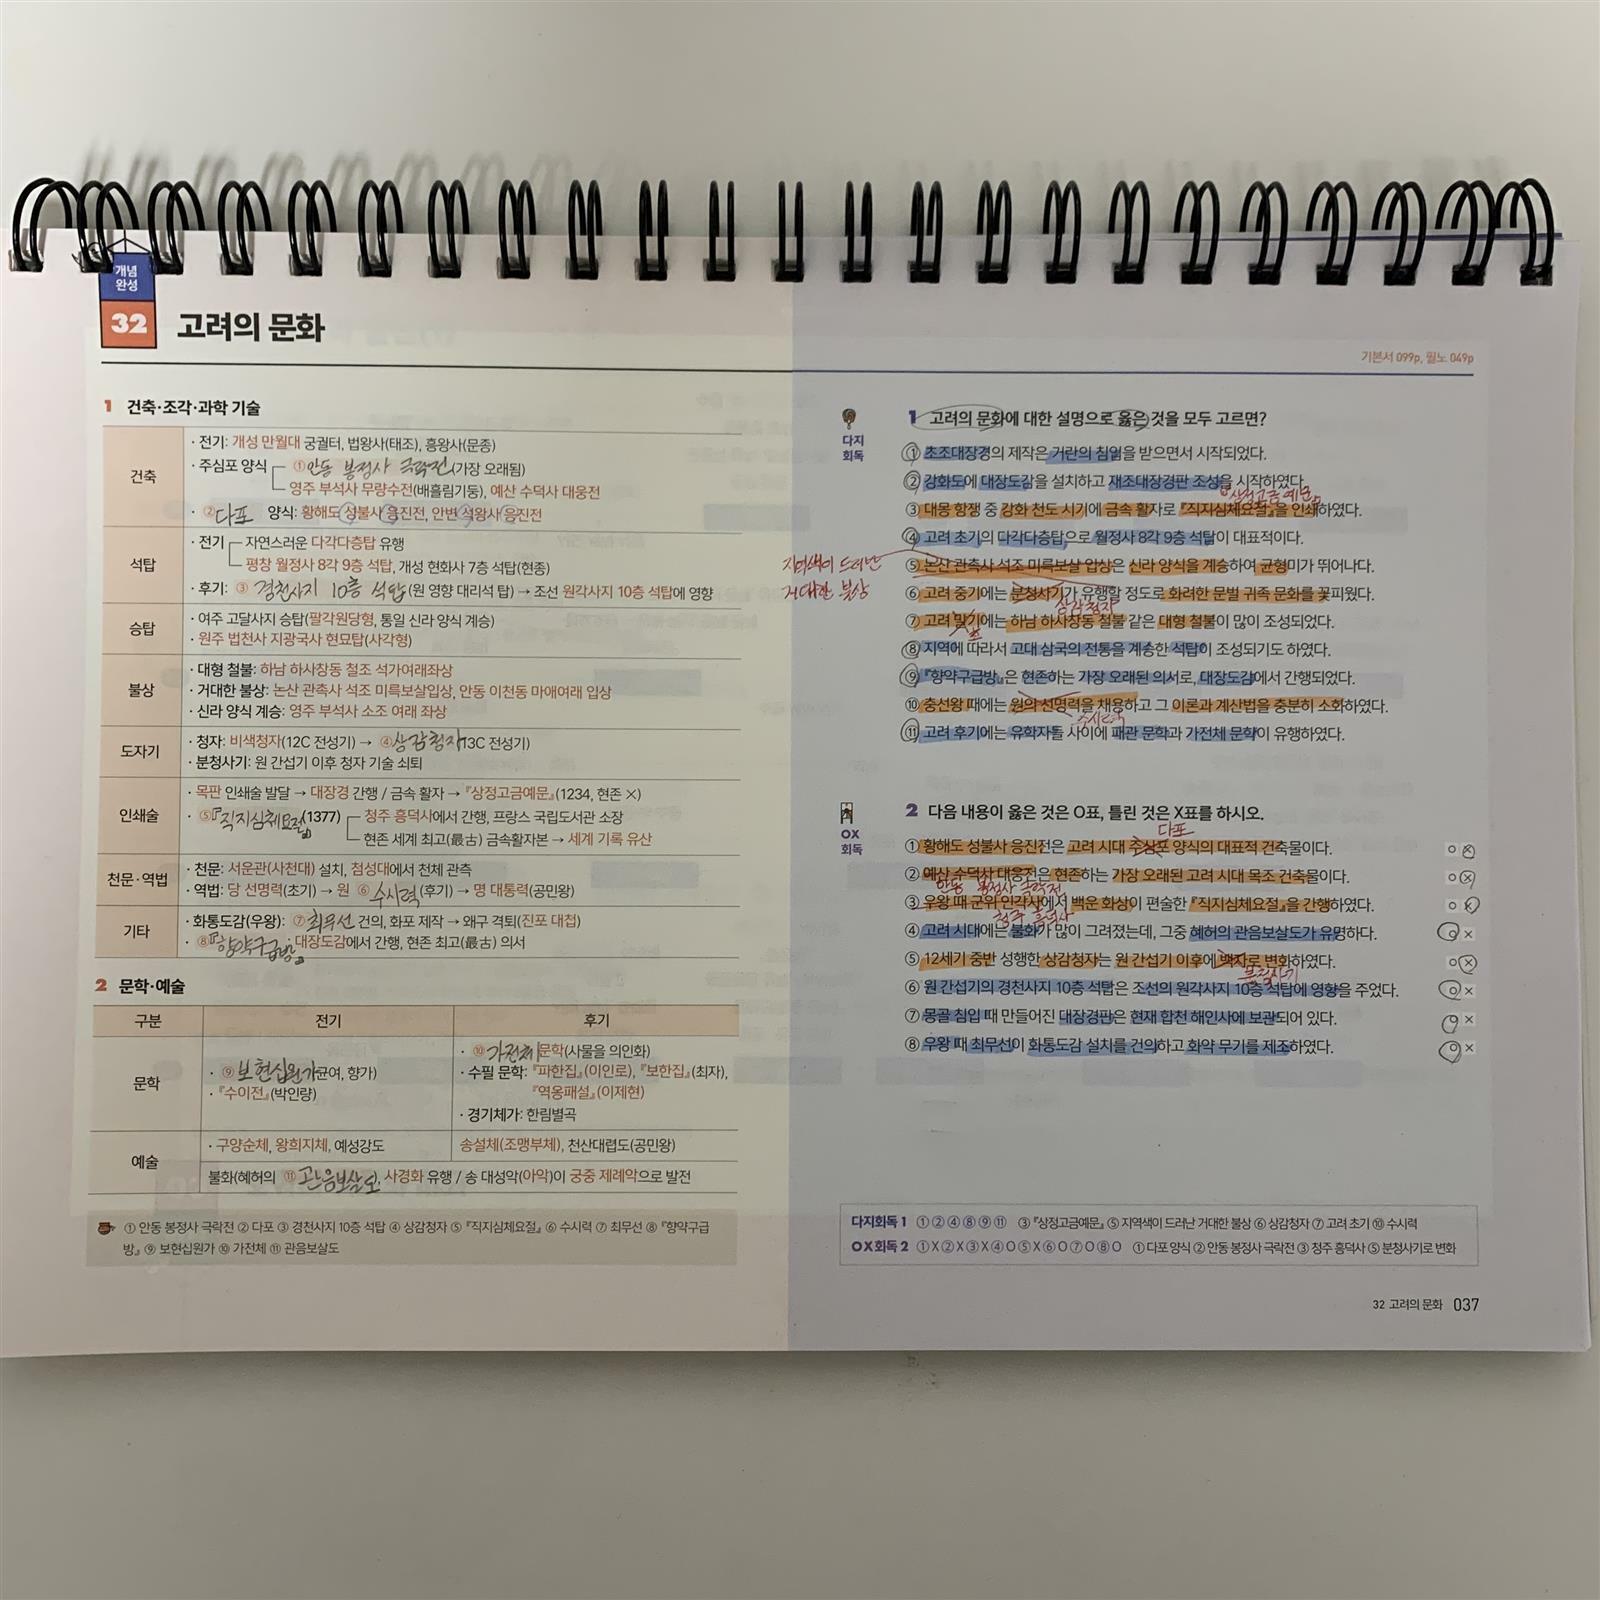 개념
완성
32 고려의 문화
기본서 099p, 필노 049p
1 건축·조각·과학 기술
건축
· 전기: 개성 만월대 궁궐터, 법왕사(태조), 흥왕사(문종)
· 주심포 양식 ①안동 봉정사 극락전(가장 오래됨)
영주 부석사 무량수전(배흘림기둥), 예산 수덕사 대웅전
· ②다포 양식: 황해도 성불사 응진전, 안변 석왕사 응진전
석탑
· 전기 자연스러운 다각다층탑 유행
평창 월정사 8각 9층 석탑, 개성 현화사 7층 석탑(현종)
· 후기: ③ 경천사지 10층 석탑(원 영향 대리석 탑) → 조선 원각사지 10층 석탑에 영향
승탑
· 여주 고달사지 승탑(팔각원당형, 통일 신라 양식 계승)
· 원주 법천사 지광국사 현묘탑(사각형)
불상
· 대형 철불: 하남 하사창동 철조 석가여래좌상
· 거대한 불상: 논산 관촉사 석조 미륵보살입상, 안동 이천동 마애여래 입상
· 신라 양식 계승: 영주 부석사 소조 여래 좌상
도자기
· 청자: 비색청자(12C 전성기) → ④상감청자(13C 전성기)
· 분청사기: 원 간섭기 이후 청자 기술 쇠퇴
인쇄술
· 목판 인쇄술 발달 → 대장경 간행 / 금속 활자 → 『상정고금예문』(1234, 현존 ×)
· ⑤『직지심체요절』(1377) 청주 흥덕사에서 간행, 프랑스 국립도서관 소장
현존 세계 최고(最古) 금속활자본 → 세계 기록 유산
천문·역법
· 천문: 서운관(사천대) 설치, 첨성대에서 천체 관측
· 역법: 당 선명력(초기) → 원 ⑥ 수시력(후기) → 명 대통력(공민왕)
기타
· 화통도감(우왕): ⑦최무선 건의, 화포 제작 → 왜구 격퇴(진포 대첩)
· ⑧『향약구급방』: 대장도감에서 간행, 현존 최고(最古) 의서
2 문학·예술
구분 전기 후기
문학
· ⑨보현십원가(균여, 향가)
· 『수이전』(박인량)
· ⑩가전체 문학(사물을 의인화)
· 수필 문학: 『파한집』(이인로), 『보한집』(최자),
『역옹패설』(이제현)
· 경기체가: 한림별곡
예술
· 구양순체, 왕희지체, 예성강도
송설체(조맹부체), 천산대렵도(공민왕)
불화(혜허의 ⑪관음보살도), 사경화 유행 / 송 대성악(아악)이 궁중 제례악으로 발전
① 안동 봉정사 극락전 ② 다포 ③ 경천사지 10층 석탑 ④ 상감청자 ⑤ 『직지심체요절』 ⑥ 수시력 ⑦ 최무선 ⑧ 『향약구급
방』 ⑨ 보현십원가 ⑩ 가전체 ⑪ 관음보살도
다지
회독
1 고려의 문화에 대한 설명으로 옳은 것을 모두 고르면?
① 초조대장경의 제작은 거란의 침입을 받으면서 시작되었다.
② 강화도에 대장도감을 설치하고 재조대장경판 조성을 시작하였다.
『상정고금예문』
③ 대몽 항쟁 중 강화 천도 시기에 금속 활자로 『직지심체요절』을 인쇄하였다.
④ 고려 초기의 다각다층탑으로 월정사 8각 9층 석탑이 대표적이다.
지역색이 드러난
거대한 불상
⑤ 논산 관촉사 석조 미륵보살 입상은 신라 양식을 계승하여 균형미가 뛰어나다.
⑥ 고려 중기에는 분청사기가 유행할 정도로 화려한 문벌 귀족 문화를 꽃피웠다.
상감청자
⑦ 고려 말기에는 하남 하사창동 철불 같은 대형 철불이 많이 조성되었다.
초
⑧ 지역에 따라서 고대 삼국의 전통을 계승한 석탑이 조성되기도 하였다.
⑨ 『향약구급방』은 현존하는 가장 오래된 의서로, 대장도감에서 간행되었다.
⑩ 충선왕 때에는 원의 선명력을 채용하고 그 이론과 계산법을 충분히 소화하였다.
수시력
⑪ 고려 후기에는 유학자들 사이에 패관 문학과 가전체 문학이 유행하였다.
OX
회독
2 다음 내용이 옳은 것은 O표, 틀린 것은 X표를 하시오.
다포
① 황해도 성불사 응진전은 고려 시대 주심포 양식의 대표적 건축물이다. O ×
② 예산 수덕사 대웅전은 현존하는 가장 오래된 고려 시대 목조 건축물이다. O ×
안동 봉정사 극락전
③ 우왕 때 군위 인각사에서 백운 화상이 편술한 『직지심체요절』을 간행하였다. O ×
청주 흥덕사
④ 고려 시대에는 불화가 많이 그려졌는데, 그중 혜허의 관음보살도가 유명하다. O ×
⑤ 12세기 중반 성행한 상감청자는 원 간섭기 이후에 백자로 변화하였다. O ×
분청사기
⑥ 원 간섭기의 경천사지 10층 석탑은 조선의 원각사지 10층 석탑에 영향을 주었다. O ×
⑦ 몽골 침입 때 만들어진 대장경판은 현재 합천 해인사에 보관되어 있다. O ×
⑧ 우왕 때 최무선이 화통도감 설치를 건의하고 화약 무기를 제조하였다. O ×
다지회독 1 ①②④⑧⑨⑪ ③ 『상정고금예문』 ⑤ 지역색이 드러난 거대한 불상 ⑥ 상감청자 ⑦ 고려 초기 ⑩ 수시력
OX회독 2 ①X②X③X④O⑤X⑥O⑦O⑧O ① 다포 양식 ② 안동 봉정사 극락전 ③ 청주 흥덕사 ⑤ 분청사기로 변화
32 고려의 문화 037